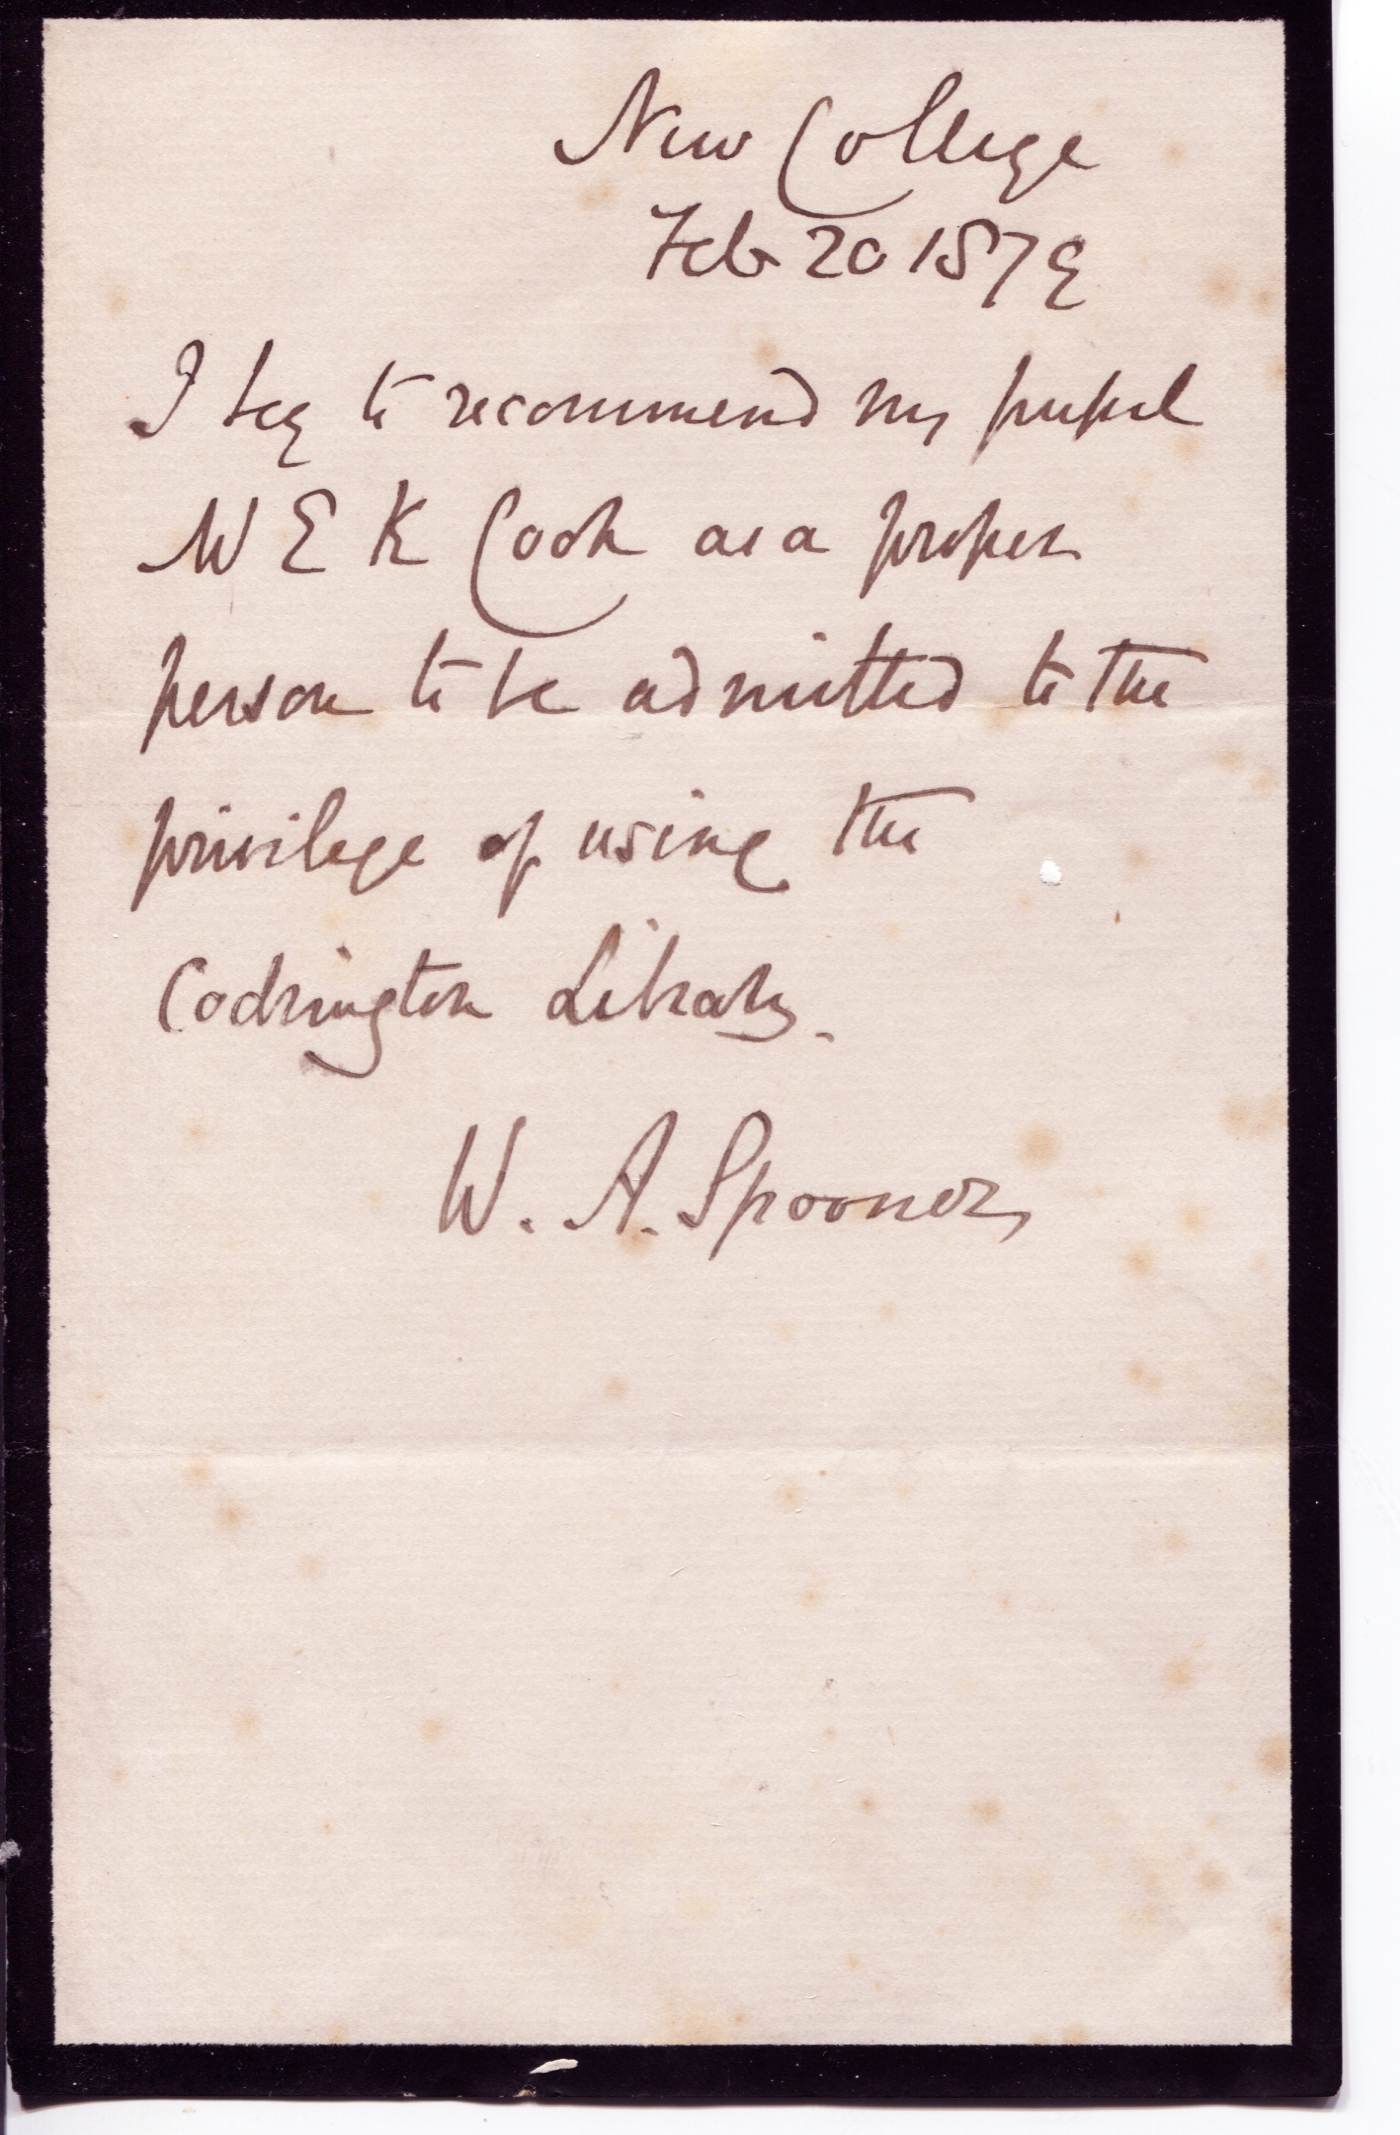 New College
Feb 20 1879
I beg to recommend my pupil
W E K Cook as a proper
person to be admitted to the
privilege of using the
Codrington Library.
W. A. Spooner